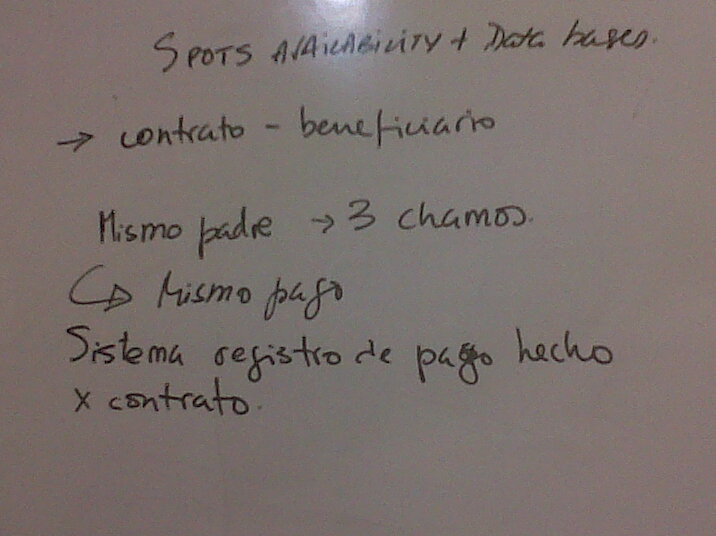 SPOTS AVAILABILITY + Data bases.
→ contrato - beneficiario
Mismo padre → 3 chamos.
↳ Mismo pago
Sistema registro de pago hecho
x contrato.